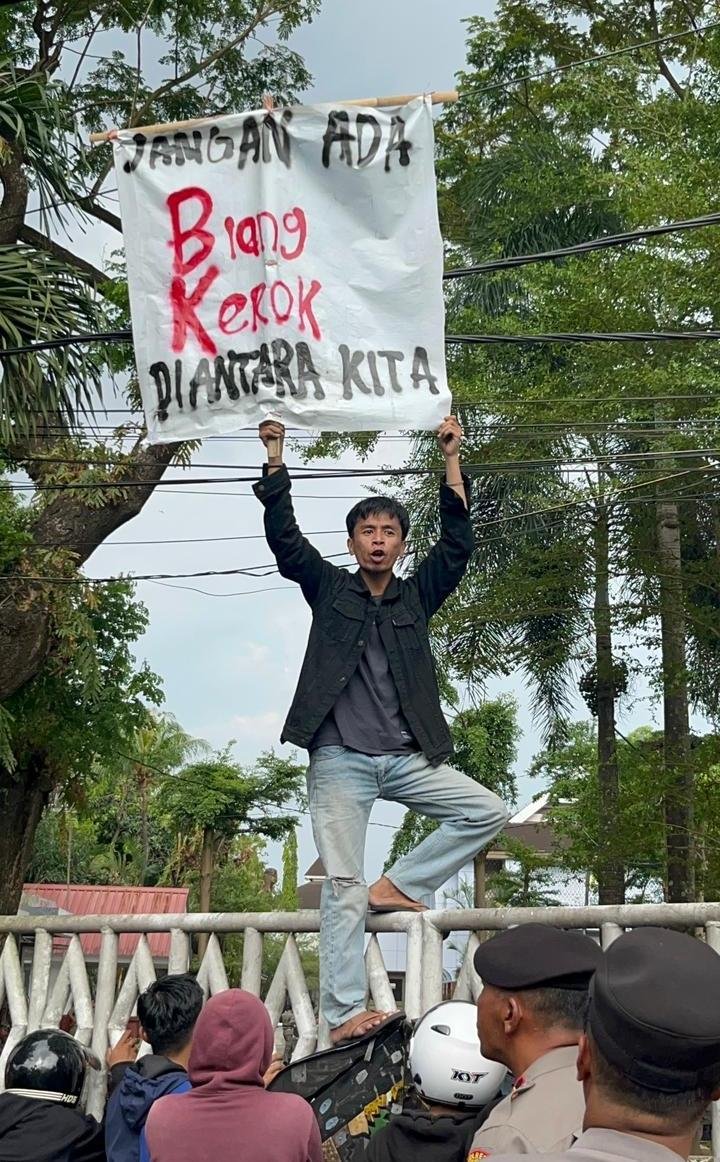 JANGAN ADA
Biang
KeROK
DIANTARA KITA
KYT
HDS